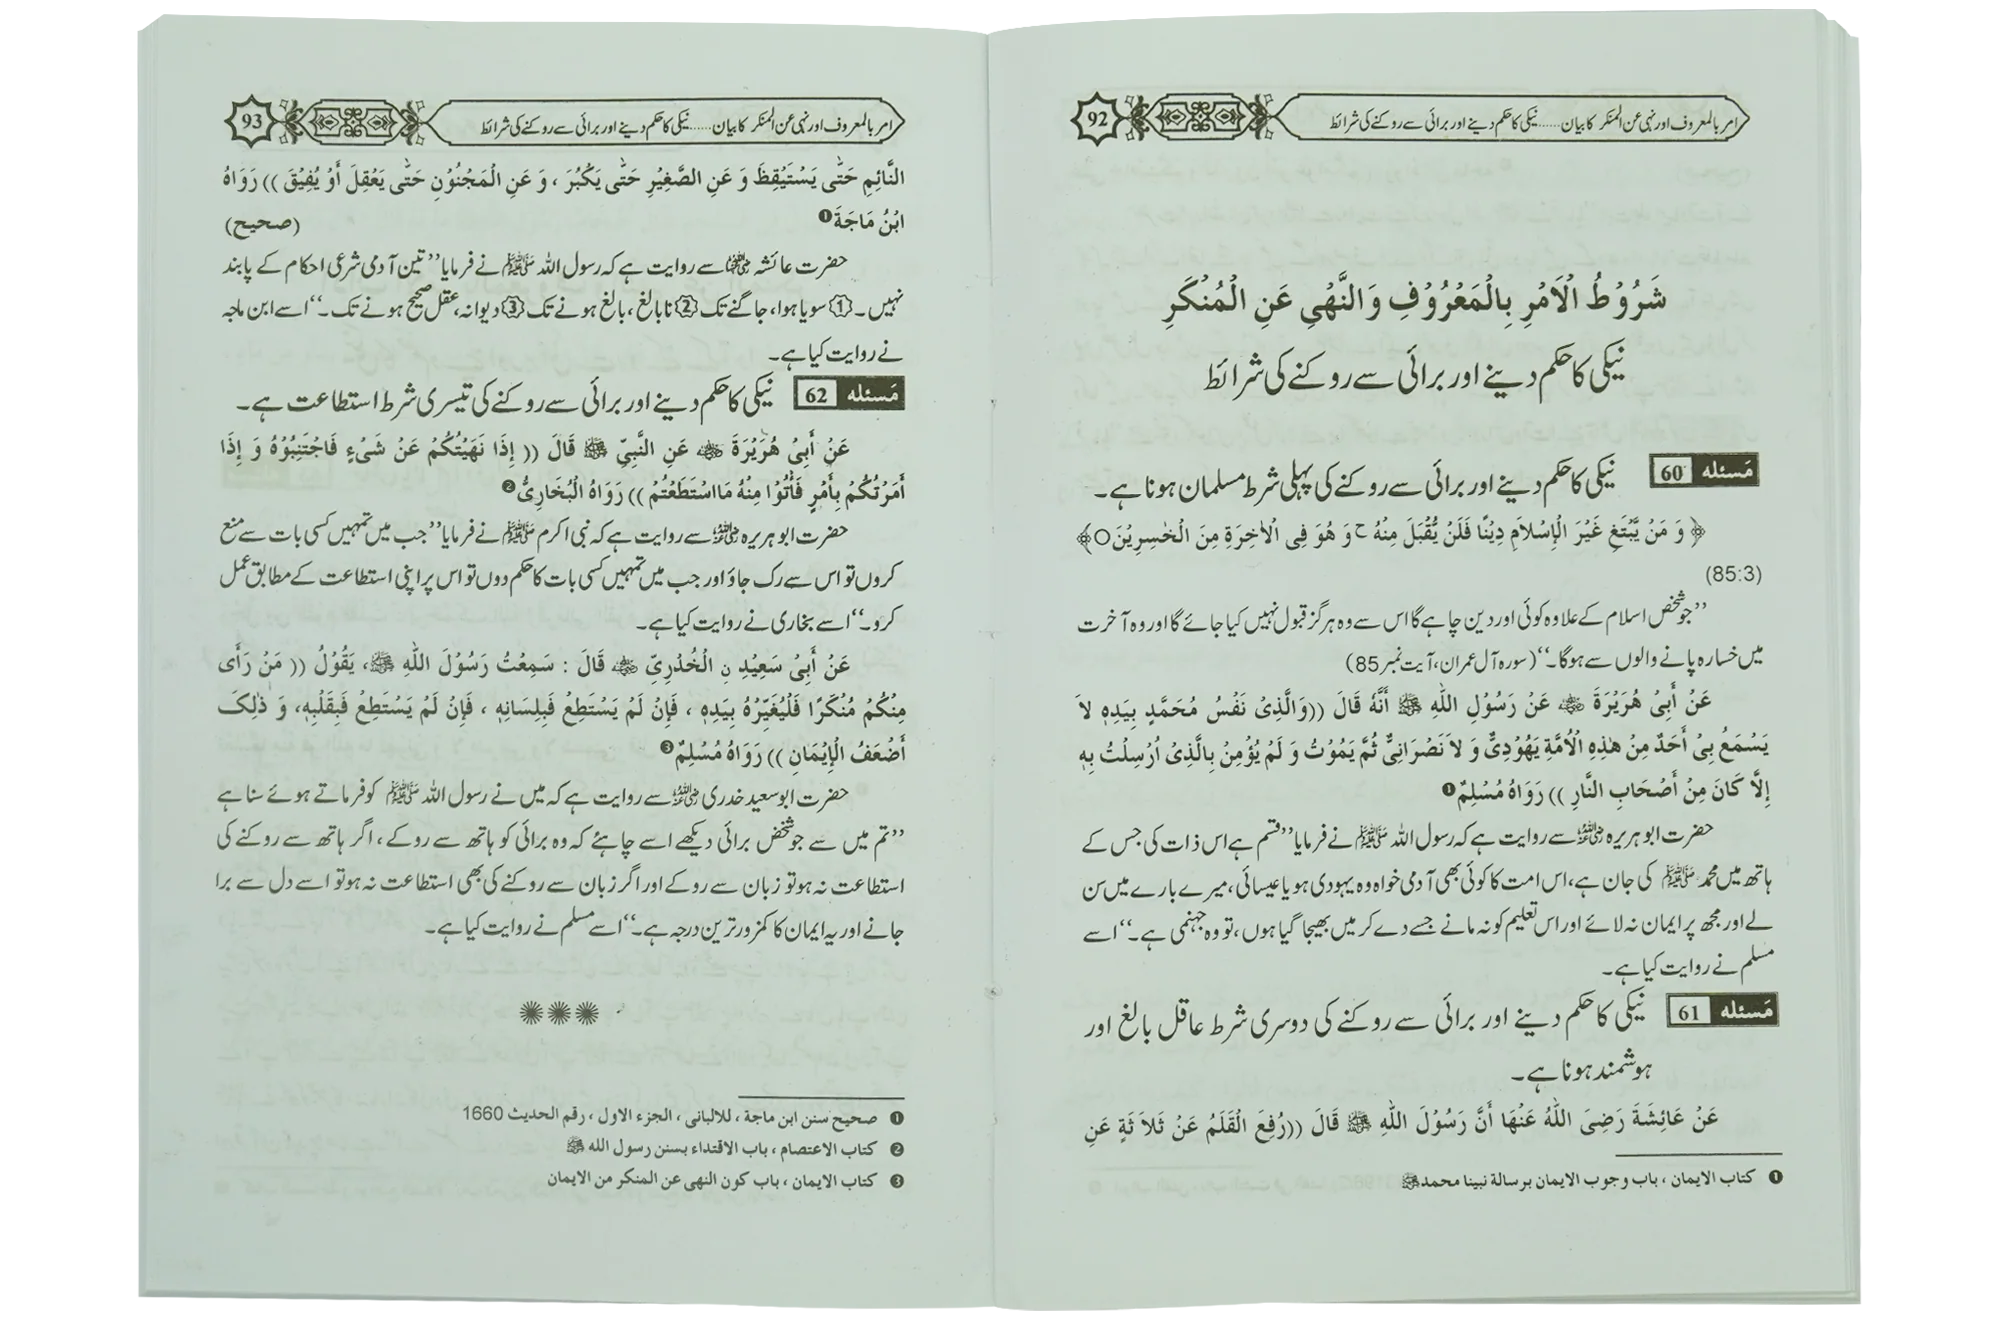 امر بالمعروف اور نہی عن المنکر کا بیان......نیکی کا حکم دینے اور برائی سے روکنے کی شرائط
92
شَرُوْطُ الْاَمْرِ بِالْمَعْرُوْفِ وَالنَّهْىِ عَنِ الْمُنْكَرِ
نیکی کا حکم دینے اور برائی سے روکنے کی شرائط
مَسئله 60 نیکی کا حکم دینے اور برائی سے روکنے کی پہلی شرط مسلمان ہونا ہے۔
﴿ وَ مَنْ يَّبْتَغِ غَيْرَ الْإِسْلاَمِ دِيْنًا فَلَنْ يُّقْبَلَ مِنْهُ ج وَ هُوَ فِى الْاٰخِرَةِ مِنَ الْخٰسِرِيْنَ○﴾
(85:3)
’’جو شخص اسلام کے علاوہ کوئی اور دین چاہے گا اس سے وہ ہرگز قبول نہیں کیا جائے گا اور وہ آخرت
میں خسارہ پانے والوں سے ہوگا۔‘‘ (سورہ آل عمران، آیت نمبر 85)
عَنْ أَبِىْ هُرَيْرَةَ ﷜ عَنْ رَسُوْلِ اللّٰهِ ﷺ أَنَّهٗ قَالَ ((وَالَّذِىْ نَفْسُ مُحَمَّدٍ بِيَدِهٖ لاَ
يَسْمَعُ بِىْ أَحَدٌ مِنْ هٰذِهِ الْاُمَّةِ يَهُوْدِىٌّ وَ لاَ نَصْرَانِىٌّ ثُمَّ يَمُوْتُ وَ لَمْ يُؤْمِنْ بِالَّذِىْ اُرْسِلْتُ بِهٖ
إِلَّا كَانَ مِنْ أَصْحَابِ النَّارِ )) رَوَاهُ مُسْلِمٌ❶
حضرت ابو ہریرہ ﷜ سے روایت ہے کہ رسول اللہ ﷺ نے فرمایا ’’قسم ہے اس ذات کی جس کے
ہاتھ میں محمد ﷺ کی جان ہے، اس امت کا کوئی بھی آدمی خواہ وہ یہودی ہو یا عیسائی، میرے بارے میں سن
لے اور مجھ پر ایمان نہ لائے اور اس تعلیم کو نہ مانے جسے دے کر میں بھیجا گیا ہوں، تو وہ جہنمی ہے۔‘‘ اسے
مسلم نے روایت کیا ہے۔
مَسئله 61 نیکی کا حکم دینے اور برائی سے روکنے کی دوسری شرط عاقل بالغ اور
ہوشمند ہونا ہے۔
عَنْ عَائِشَةَ رَضِىَ اللّٰهُ عَنْهَا أَنَّ رَسُوْلَ اللّٰهِ ﷺ قَالَ ((رُفِعَ الْقَلَمُ عَنْ ثَلاَ ثَةٍ عَنِ
❶ كتاب الايمان ، باب وجوب الايمان برسالة نبينا محمد ﷺ
امر بالمعروف اور نہی عن المنکر کا بیان......نیکی کا حکم دینے اور برائی سے روکنے کی شرائط
93
النَّائِمِ حَتّٰى يَسْتَيْقِظَ وَ عَنِ الصَّغِيْرِ حَتّٰى يَكْبُرَ ، وَ عَنِ الْمَجْنُوْنِ حَتّٰى يَعْقِلَ أَوْ يُفِيْقَ )) رَوَاهُ
ابْنُ مَاجَةَ❶ (صحیح)
حضرت عائشہ ؓ سے روایت ہے کہ رسول اللہ ﷺ نے فرمایا ’’تین آدمی شرعی احکام کے پابند
نہیں۔ (1) سویا ہوا، جاگنے تک (2) نابالغ، بالغ ہونے تک (3) دیوانہ، عقل صحیح ہونے تک۔‘‘ اسے ابن ماجہ
نے روایت کیا ہے۔
مَسئله 62 نیکی کا حکم دینے اور برائی سے روکنے کی تیسری شرط استطاعت ہے۔
عَنْ أَبِىْ هُرَيْرَةَ ﷜ عَنِ النَّبِىِّ ﷺ قَالَ (( إِذَا نَهَيْتُكُمْ عَنْ شَىْءٍ فَاجْتَنِبُوْهُ وَ إِذَا
أَمَرْتُكُمْ بِأَمْرٍ فَأْتُوْا مِنْهُ مَااسْتَطَعْتُمْ )) رَوَاهُ الْبُخَارِىُّ❷
حضرت ابو ہریرہ ﷜ سے روایت ہے کہ نبی اکرم ﷺ نے فرمایا ’’جب میں تمہیں کسی بات سے منع
کروں تو اس سے رک جاؤ اور جب میں تمہیں کسی بات کا حکم دوں تو اس پر اپنی استطاعت کے مطابق عمل
کرو۔‘‘ اسے بخاری نے روایت کیا ہے۔
عَنْ أَبِىْ سَعِيْدِ نِ الْخُدْرِىِّ ﷜ قَالَ : سَمِعْتُ رَسُوْلَ اللّٰهِ ﷺ، يَقُوْلُ (( مَنْ رَأَى
مِنْكُمْ مُنْكَرًا فَلْيُغَيِّرْهُ بِيَدِهٖ ، فَإِنْ لَمْ يَسْتَطِعْ فَبِلِسَانِهٖ ، فَإِنْ لَمْ يَسْتَطِعْ فَبِقَلْبِهٖ، وَ ذٰلِكَ
أَضْعَفُ الْإِيْمَانِ )) رَوَاهُ مُسْلِمٌ❸
حضرت ابو سعید خدری ﷜ سے روایت ہے کہ میں نے رسول اللہ ﷺ کو فرماتے ہوئے سنا ہے
’’تم میں سے جو شخص برائی دیکھے اسے چاہئے کہ وہ برائی کو ہاتھ سے روکے، اگر ہاتھ سے روکنے کی
استطاعت نہ ہو تو زبان سے روکے اور اگر زبان سے روکنے کی بھی استطاعت نہ ہو تو اسے دل سے برا
جانے اور یہ ایمان کا کمزور ترین درجہ ہے۔‘‘ اسے مسلم نے روایت کیا ہے۔
❶ صحيح سنن ابن ماجة ، للالبانى ، الجزء الاول ، رقم الحديث 1660
❷ كتاب الاعتصام ، باب الاقتداء بسنن رسول الله ﷺ
❸ كتاب الايمان ، باب كون النهى عن المنكر من الايمان